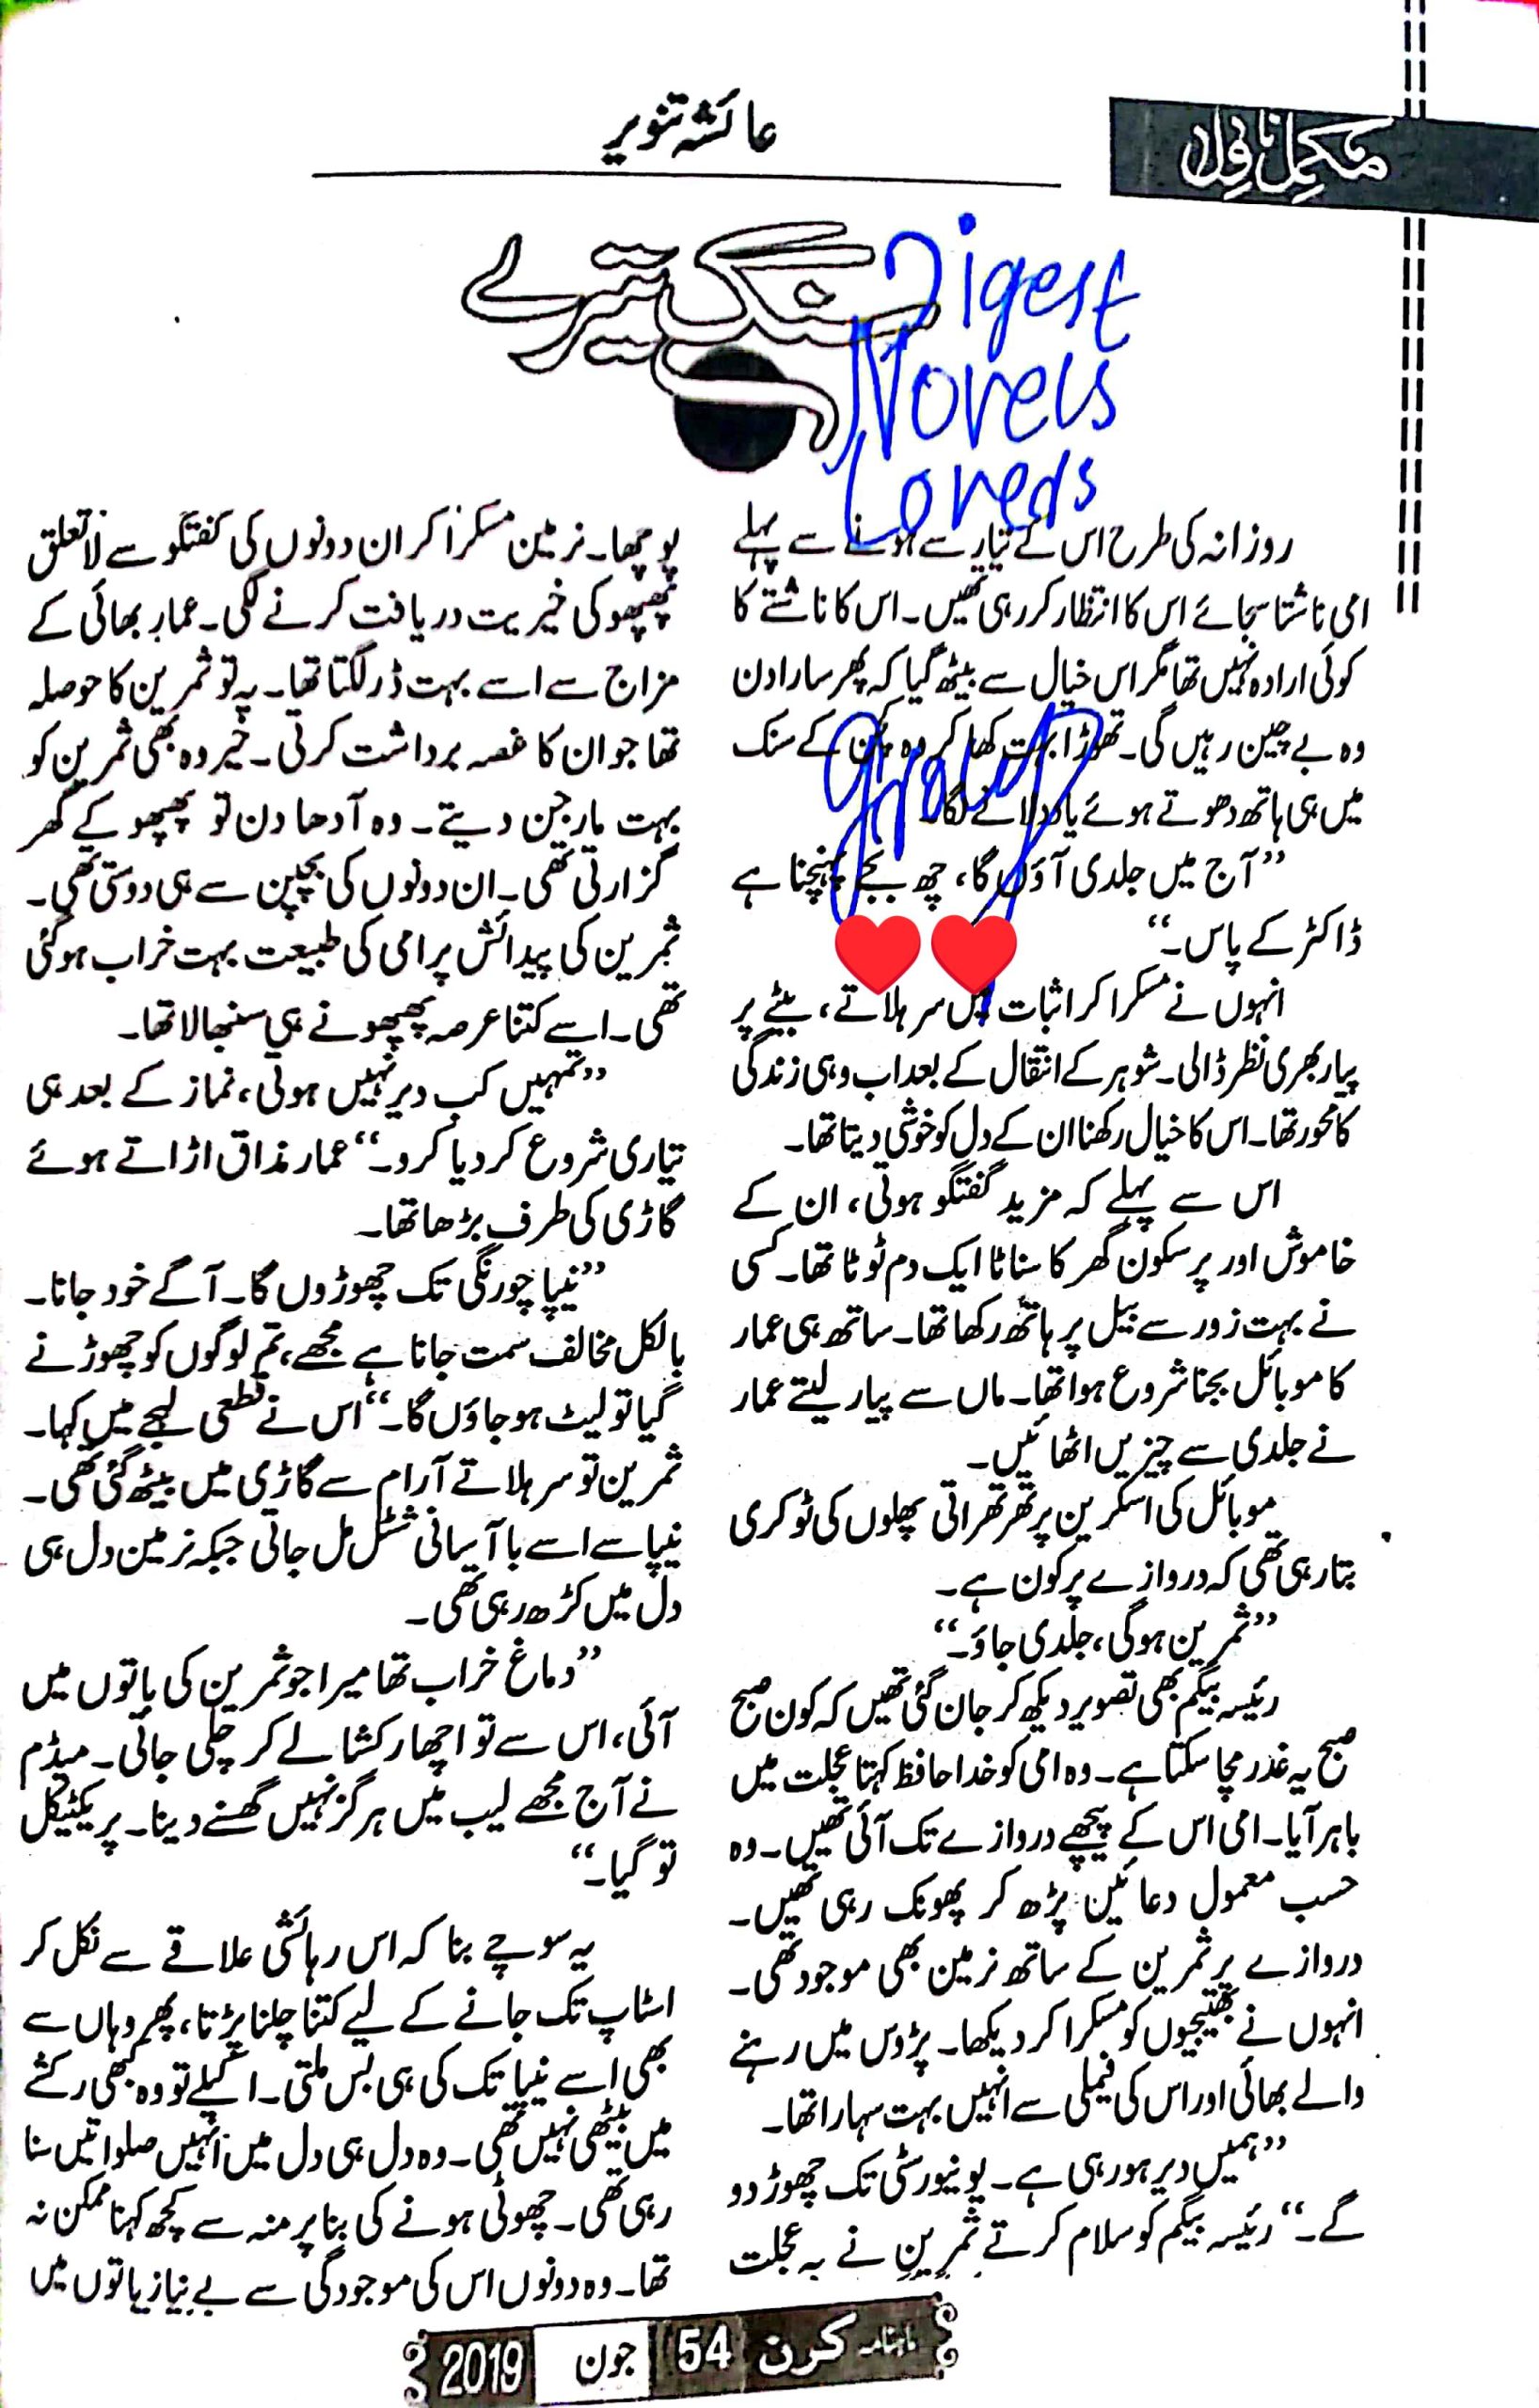 مکمل ناول
عائشہ تنویر
سنگ تیرے
Digest
Novels
Lovers
Group
روزانہ کی طرح اس کے تیار ہونے سے پہلے
امی ناشتا سجائے اس کا انتظار کر رہی تھیں۔ اس کا ناشتے کا
کوئی ارادہ نہیں تھا مگر اس خیال سے بیٹھ گیا کہ پھر سارا دن
وہ بے چین رہیں گی۔ تھوڑا بہت کھا کر وہ کچن کے سنک
میں ہی ہاتھ دھوتے ہوئے یاد دلانے لگا۔
”آج میں جلدی آؤں گا، چھ بجے پہنچنا ہے
ڈاکٹر کے پاس۔“
انہوں نے مسکرا کر اثبات میں سر ہلاتے، بیٹے پر
پیار بھری نظر ڈالی۔ شوہر کے انتقال کے بعد اب وہی زندگی
کا محور تھا۔ اس کا خیال رکھنا ان کے دل کو خوشی دیتا تھا۔
اس سے پہلے کہ مزید گفتگو ہوتی، ان کے
خاموش اور پرسکون گھر کا سناٹا ایک دم ٹوٹا تھا۔ کسی
نے بہت زور سے بیل پر ہاتھ رکھا تھا۔ ساتھ ہی عمار
کا موبائل بجنا شروع ہوا تھا۔ ماں سے پیار لیتے عمار
نے جلدی سے چیزیں اٹھائیں۔
موبائل کی اسکرین پر تھرتھراتی پھلوں کی ٹوکری
بتا رہی تھی کہ دروازے پر کون ہے۔
”ثمرین ہوگی، جلدی جاؤ۔“
رئیسہ بیگم بھی تصویر دیکھ کر جان گئی تھیں کہ کون صبح
صبح یہ غدر مچا سکتا ہے۔ وہ امی کو خدا حافظ کہتا عجلت میں
باہر آیا۔ امی اس کے پیچھے دروازے تک آئی تھیں۔ وہ
حسب معمول دعائیں پڑھ کر پھونک رہی تھیں۔
دروازے پر ثمرین کے ساتھ نرمین بھی موجود تھی۔
انہوں نے بھتیجیوں کو مسکرا کر دیکھا۔ پڑوس میں رہنے
والے بھائی اور اس کی فیملی سے انہیں بہت سہارا تھا۔
”ہمیں دیر ہو رہی ہے۔ یونیورسٹی تک چھوڑ دو
گے۔“ رئیسہ بیگم کو سلام کرتے ثمرین نے بہ عجلت
پوچھا۔ نرمین مسکرا کر ان دونوں کی گفتگو سے لاتعلق
پھپھو کی خیریت دریافت کرنے لگی۔ عمار بھائی کے
مزاج سے اسے بہت ڈر لگتا تھا۔ یہ تو ثمرین کا حوصلہ
تھا جو ان کا غصہ برداشت کرتی۔ خیر وہ بھی ثمرین کو
بہت مارجن دیتے۔ وہ آدھا دن تو پھپھو کے گھر
گزارتی تھی۔ ان دونوں کی بچپن سے ہی دوستی تھی۔
ثمرین کی پیدائش پر امی کی طبیعت بہت خراب ہوگئی
تھی۔ اسے کتنا عرصہ پھپھو نے ہی سنبھالا تھا۔
”تمہیں کب دیر نہیں ہوتی، نماز کے بعد ہی
تیاری شروع کر دیا کرو۔“ عمار مذاق اڑاتے ہوئے
گاڑی کی طرف بڑھا تھا۔
”نیپا چورنگی تک چھوڑوں گا۔ آگے خود جانا۔
بالکل مخالف سمت جانا ہے مجھے، تم لوگوں کو چھوڑنے
گیا تو لیٹ ہو جاؤں گا۔“ اس نے قطعی لہجے میں کہا۔
ثمرین تو سر ہلاتے آرام سے گاڑی میں بیٹھ گئی تھی۔
نیپا سے اسے با آسانی شٹل مل جاتی جبکہ نرمین دل ہی
دل میں کڑھ رہی تھی۔
”دماغ خراب تھا میرا جو ثمرین کی باتوں میں
آئی، اس سے تو اچھا رکشا لے کر چلی جاتی۔ میڈم
نے آج مجھے لیب میں ہرگز نہیں گھسنے دینا۔ پریکٹیکل
تو گیا۔“
یہ سوچے بنا کہ اس رہائشی علاقے سے نکل کر
اسٹاپ تک جانے کے لیے کتنا چلنا پڑتا، پھر وہاں سے
بھی اسے نیپا تک کی ہی بس ملتی۔ اکیلے تو وہ کبھی رکشے
میں بیٹھی نہیں تھی۔ وہ دل ہی دل میں انہیں صلواتیں سنا
رہی تھی۔ چھوٹی ہونے کی بنا پر منہ سے کچھ کہنا ممکن نہ
تھا۔ وہ دونوں اس کی موجودگی سے بے نیاز باتوں میں
ماہنامہ کرن 54 جون 2019